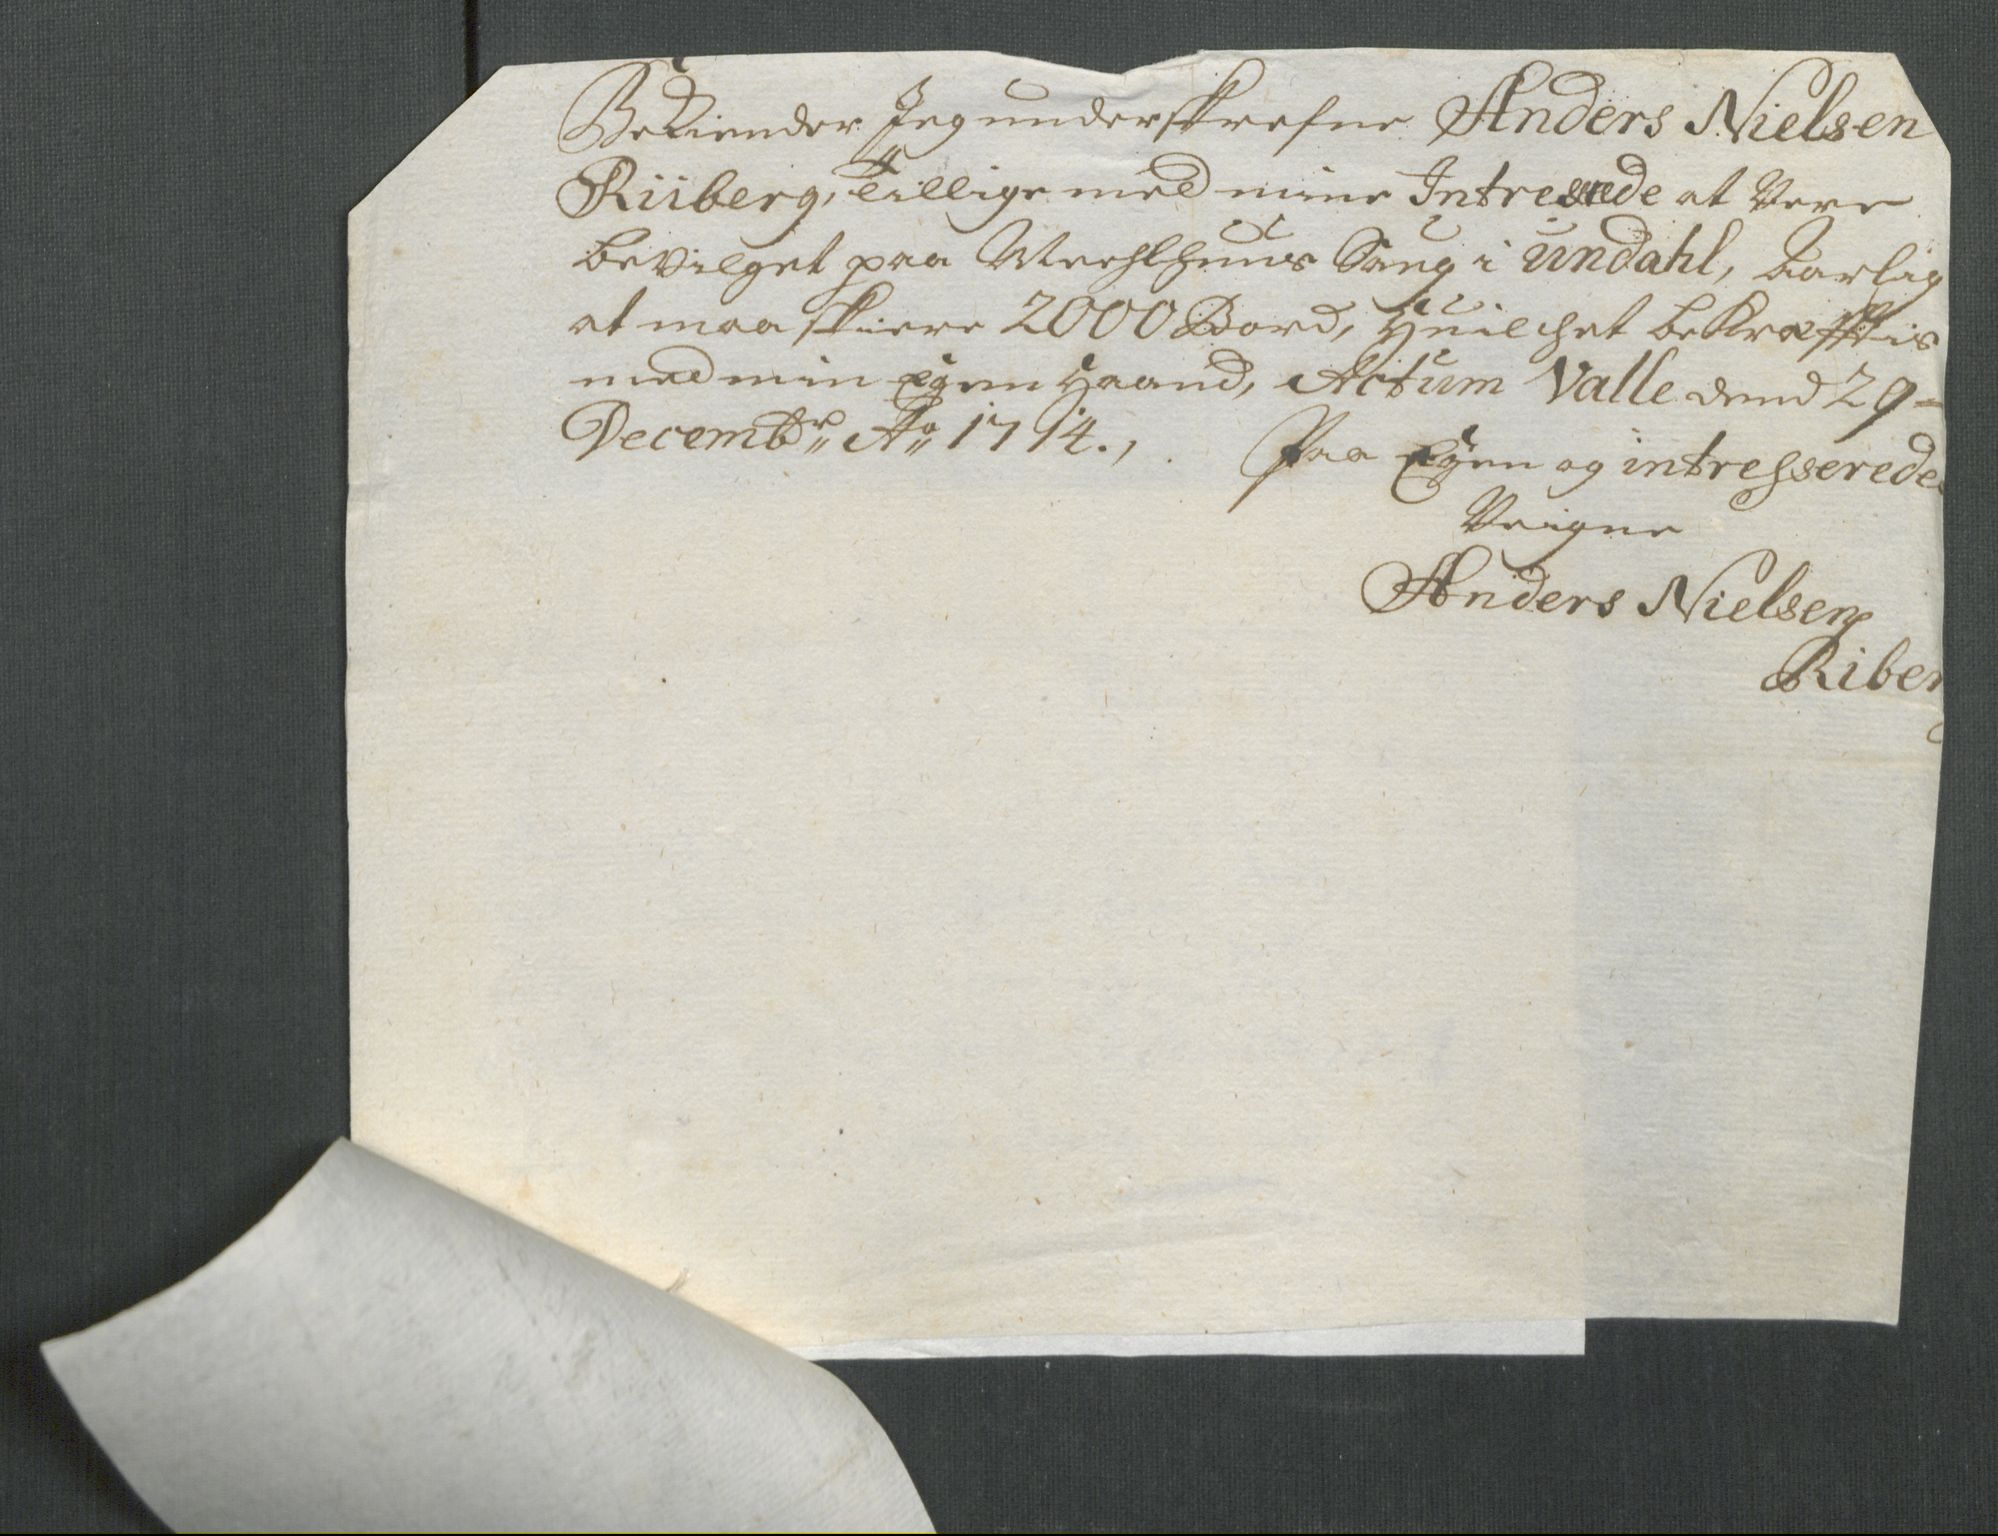 Bekiender Jeg underskrefne Anders Nielsen
Riiberg, Tillige med mine Intressede at Vere
bevilget paa Meehlhuus Saug i Undahl, aarlig
at maa skiere 2000 Bord, Huilchet bekræfftis
med min Egen Haand, Actum Valle dend 29
Decembr. Ao 1714.,
Paa Egen og intresserede
Veigne
Anders Nielsen
Riberg